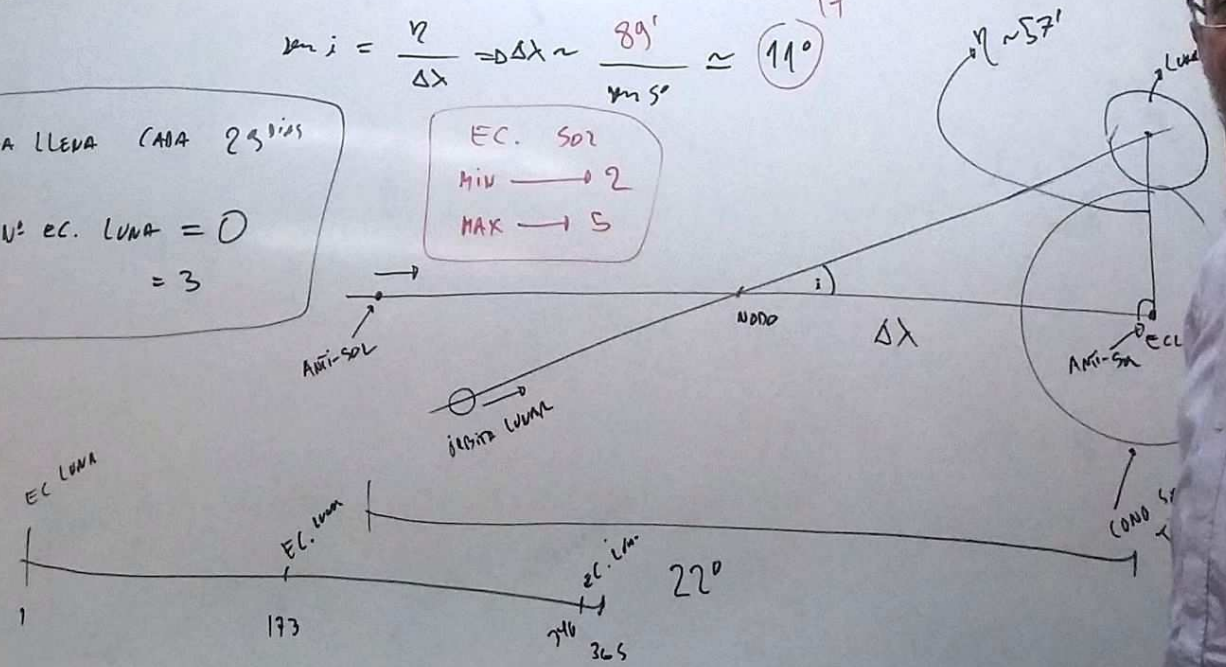 17
sen i = η / Δλ ⇒ Δλ ~ 89' / sen 5° ≃ 11°
η ~57'
LUNA
A LLENA CADA 29 DIAS
Nº EC. LUNA = 0
= 3
EC. SOL
MIN → 2
MAX → 5
ANTI-SOL
NODO
i
Δλ
ANTI-SOL
ECL
ÓRBITA LUNAR
CONO
EC LUNA
EC. LUNA
EC. LUN.
22°
1
173
346
365